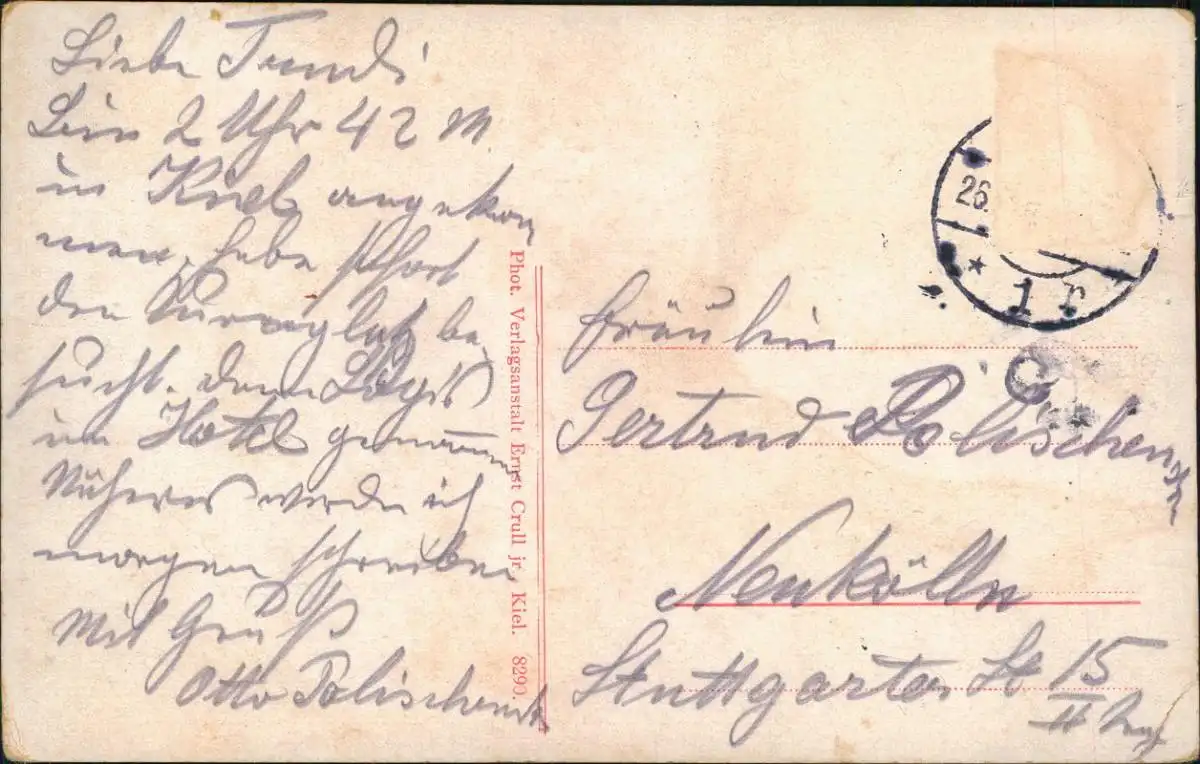 Liebe Trudi
Bin 2 Uhr 42 M.
in Kiel angekom
men, habe sofort
den be
sucht. dann Logis
im Hotel genommen
Näheres werde ich
morgen schreiben
Mit Gruß
Otto
Phot. Verlagsanstalt Ernst Crull jr., Kiel. 8290.
26.
* 1 r
Fräulein
Gertrud
Neukölln
Stuttgarter St 15
II